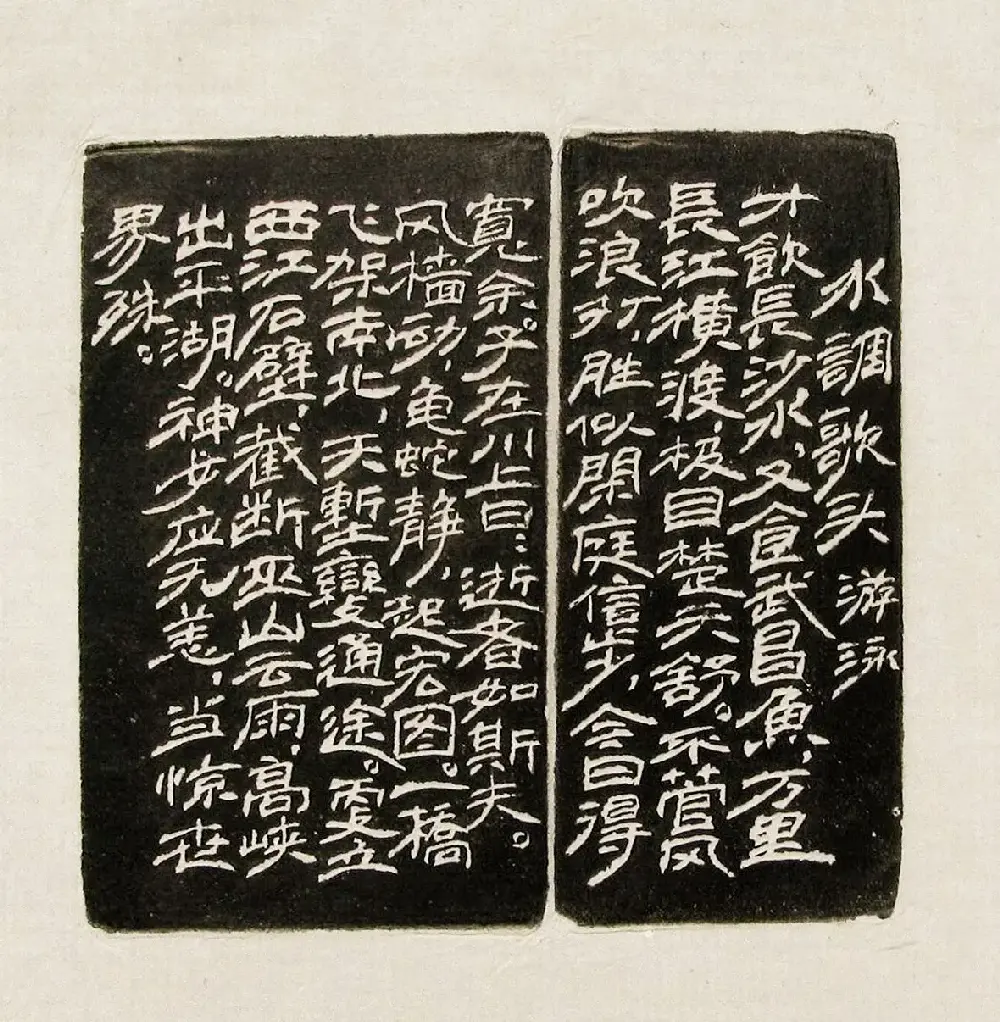 水調歌头 游泳
才飲長沙水、又食武昌魚、万里
長江橫渡、极目楚天舒。不管风
吹浪打，胜似閑庭信步，今日得
寬余。子在川上曰：逝者如斯夫。
风樯动，龟蛇静，起宏图。一橋
飞架南北，天塹變通途。更立
西江石壁，截断巫山云雨，高峡
出平湖。神女应无恙，当惊世
界殊。